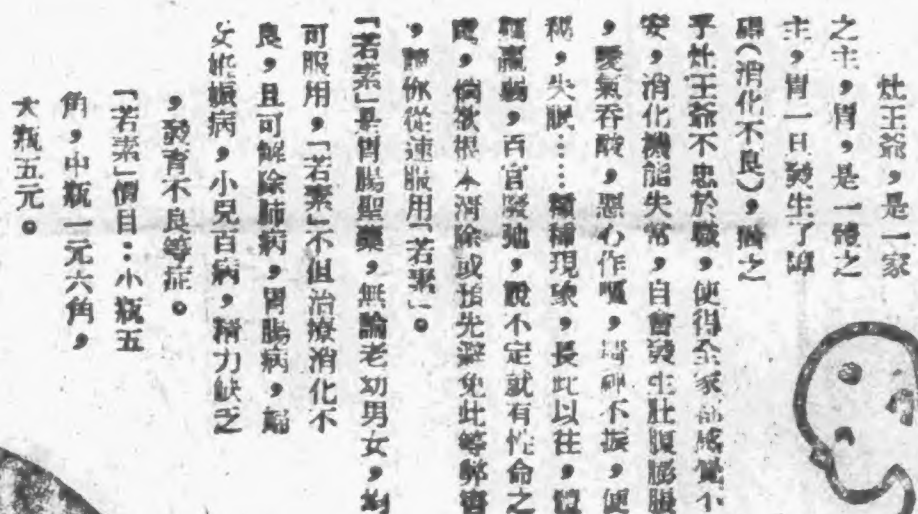 灶王爺，是一家
之主，胃，是一體之
主，胃一日發生了障
碍（消化不良），猶之
乎灶王爺不忠於職，使得全家都感覺不
安，消化機能失常，自會發生肚腹膨脹
，噯氣吞酸，惡心作嘔，精神不振，便
秘，失眠……種種現象，長此以往，體
羸弱，百官廢弛，說不定就有性命之
虞，倘欲根本消除或預先避免此等弊害
，請你從速服用「若素」。
「若素」是胃腸聖藥，無論老幼男女，均
可服用，「若素」不但治療消化不
良，且可解除肺病，胃腸病，婦
女姙娠病，小兒百病，精力缺乏
，發育不良等症。
「若素」價目：小瓶五
角，中瓶一元六角，
大瓶五元。